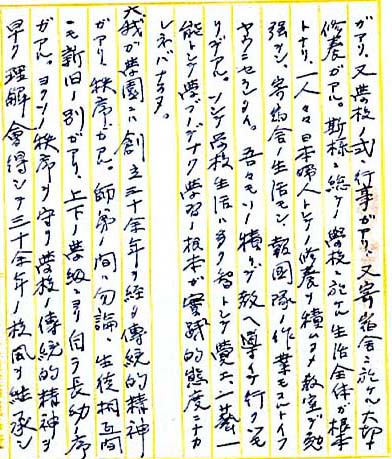 ガアリ、又學校ノ式、行事ガアリ、又寄宿舎ニ於ケル大切ナ
修養ガアル。斯様ニ総テ學校ニ於ケル生活全体ガ根本
トナリ、一人々々日本婦人トシテノ修養ヲ積ムタメ教室デ勉
強シ、寄宿舎生活モシ、報國隊ノ作業モスルトイフ
ヤウニセラレタイ。吾々モソノ積リデ教ヘ導イテ行クツモ
リデアル。ソシテ學校生活ハ
能トシテ學ブノデナク學習ノ根本ガ實践的態度ニナカ
レネバナラヌ。
我ガ學園ハ創立三十余年ヲ経タ傳統的精神
ガアリ、秩序ガアル。師弟ノ間ハ勿論、生徒相互間
ニモ新旧ノ別ガアリ、上下ノ學級ニヨリ自ラ長幼ノ序
ガアル。ヨクソノ秩序ヲ守リ學校ノ傳統的精神ヲ
早ク理解會得シテ三十余年ノ校風ヲ継承シ